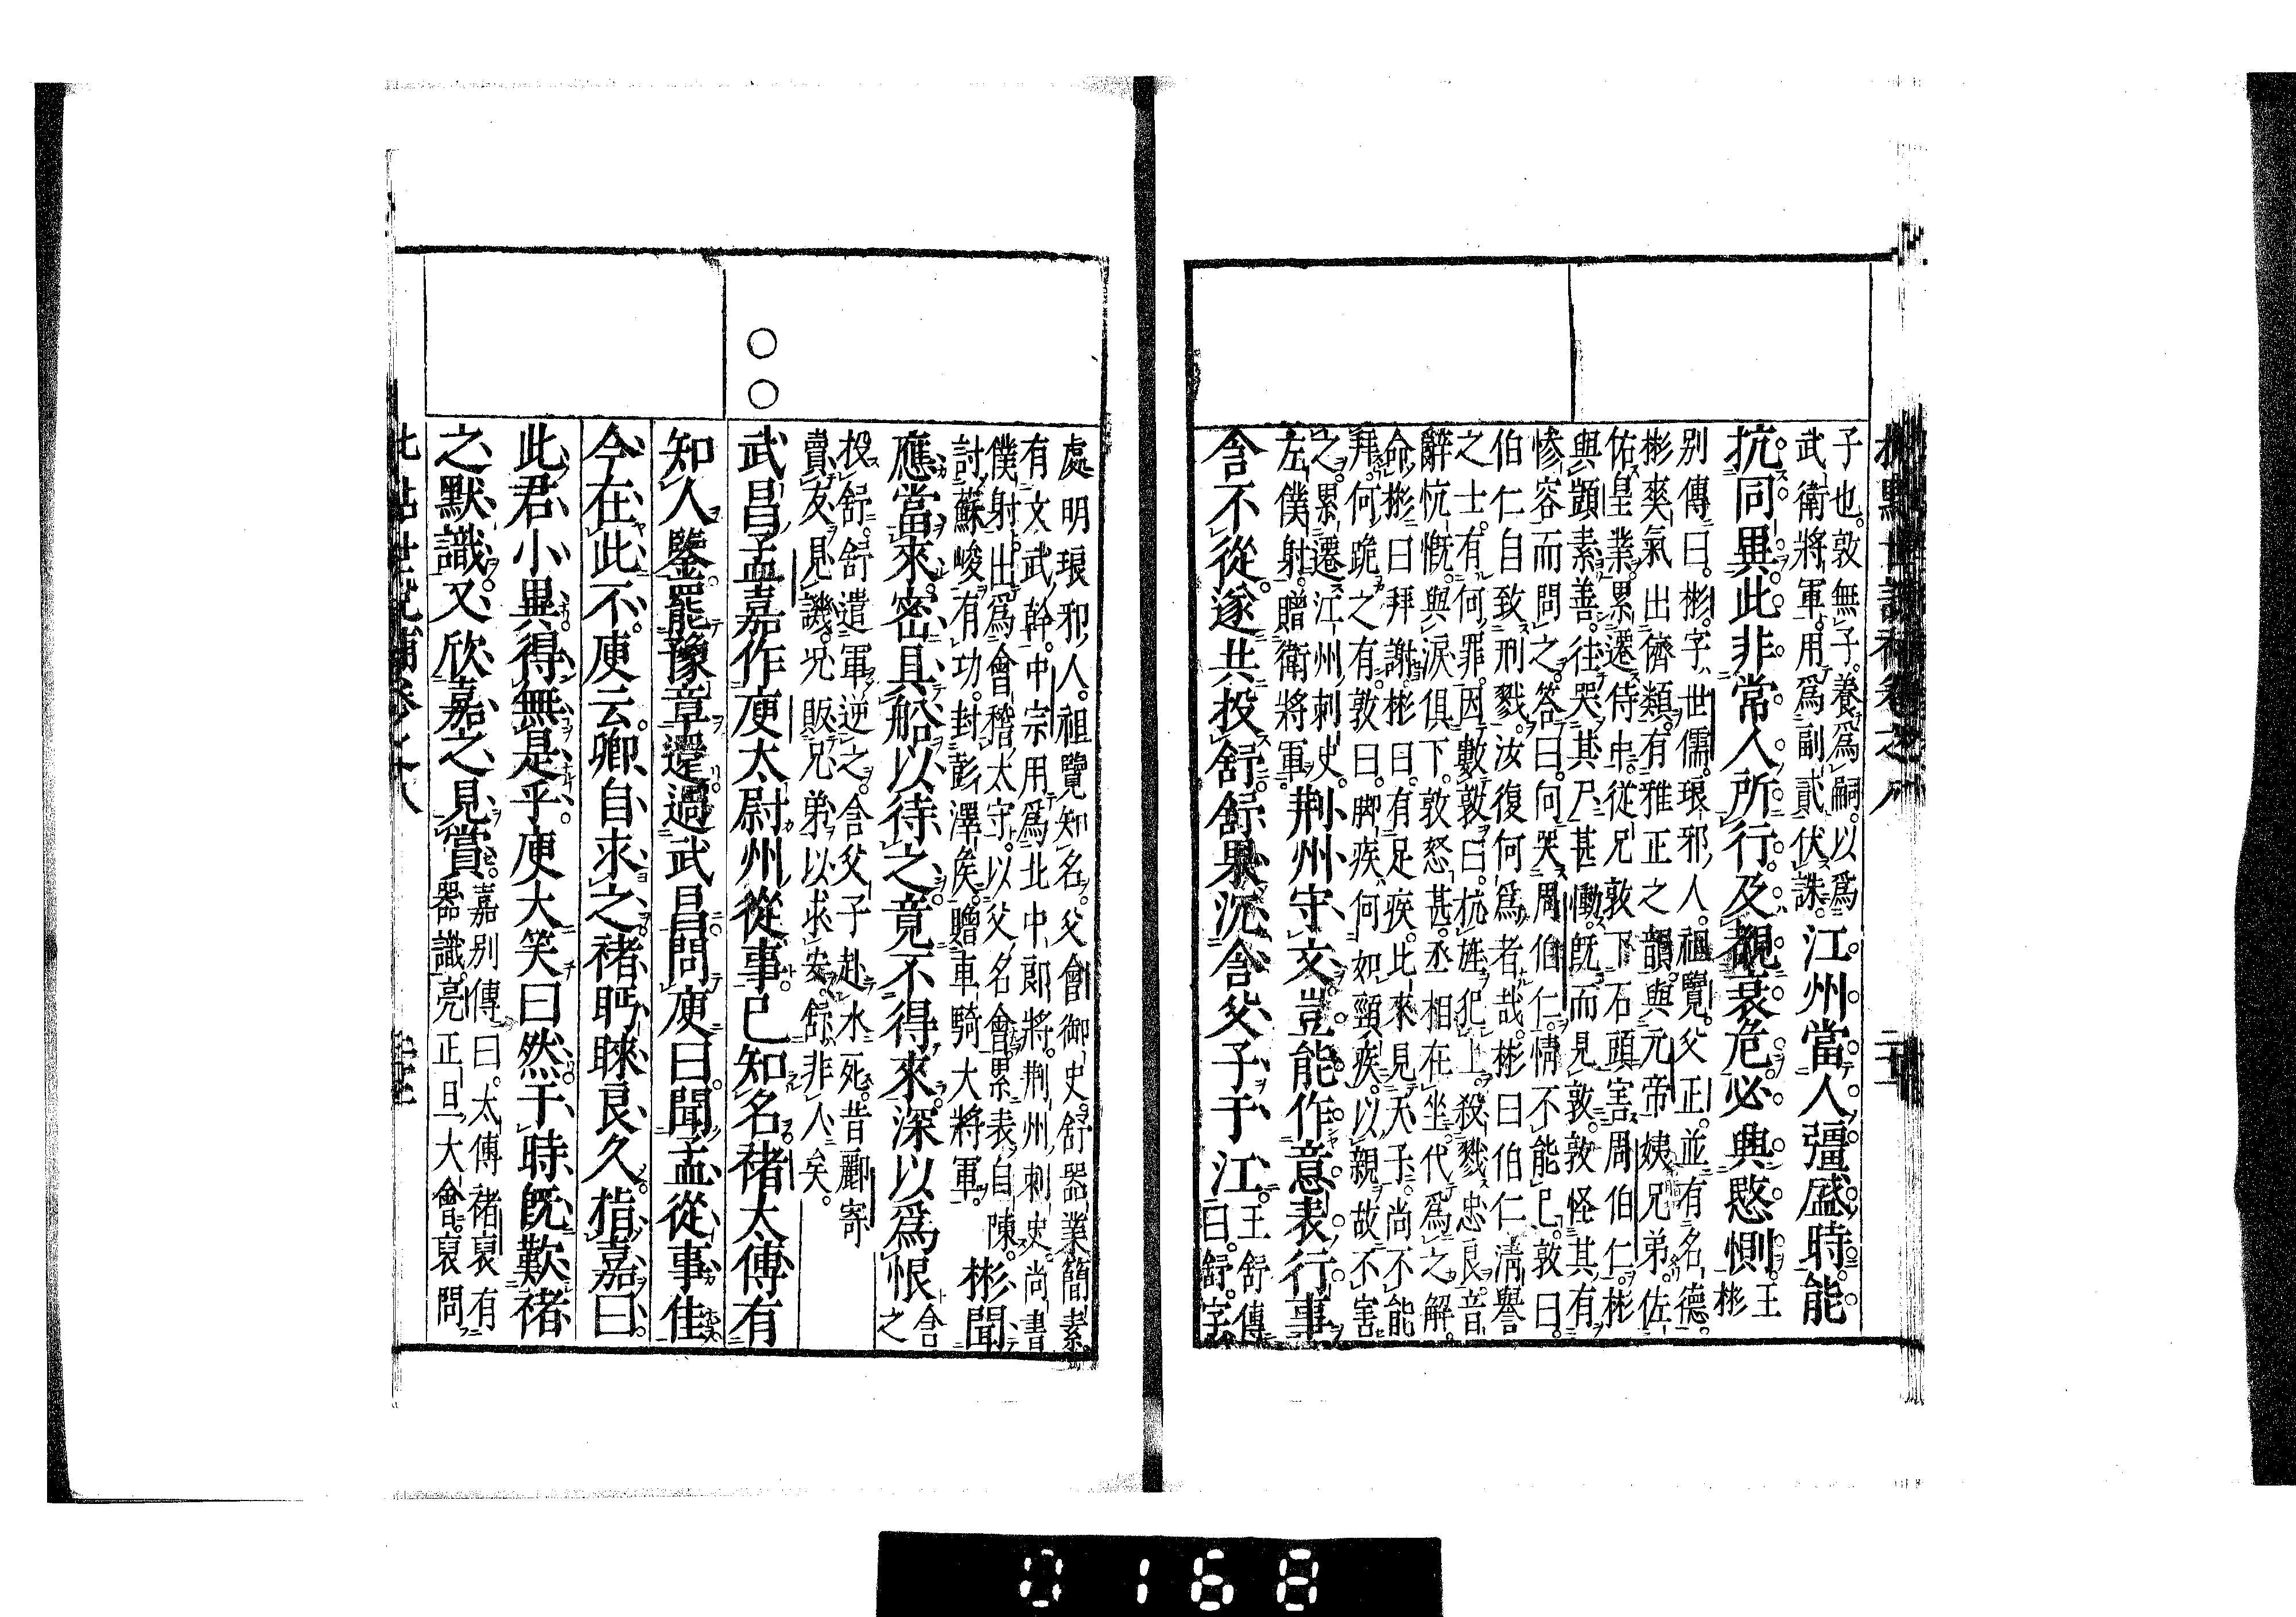 批點世說補卷之八
子也。敦無子。養爲嗣。以爲
武衛將軍。用爲副貳。伏誅。
江州當人彊盛時。能
抗同異。此非常人所行。及覩衰危。必興愍惻。
王彬
別傳曰。彬字世儒。琅邪人。祖覽。父正。並有名德。
彬爽氣出儕類。有雅正之韻。與元帝姨兄弟。佐
佑皇業。累遷侍中。從兄敦下石頭。害周伯仁。彬
與顗素善。往哭其尸。甚慟。既而見敦。敦怪其有
慘容而問之。答曰。向哭周伯仁。情不能已。敦曰。
伯仁自致刑戮。汝復何爲者哉。彬曰。伯仁淸譽
之士。有何罪。因數敦曰。抗旌犯上。殺戮忠良。音
辭忼慨。與淚俱下。敦怒甚。丞相在坐。代爲之解。
命彬曰。拜謝。彬曰。有足疾。此來見天子。尚不能
拜。何跪之有。敦曰。脚疾何如頸疾。以親故。不害
之。累遷江州刺史。
左僕射。贈衛將軍。
荆州守文。豈能作意表行事。
含不從。遂共投舒。舒果沉含父子于江。
王舒傳
曰。舒字
處明。琅邪人。祖覽知名。父會御史。舒器業簡素。
有文武幹。中宗用爲北中郎將。荆州刺史。尚書
僕射。出爲會稽太守。以父名會。累表自陳。
討蘇峻有功。封彭澤矦。贈車騎大將軍。
彬聞
應當來。密具船以待之。竟不得來。深以爲恨
含
之
投舒。舒遣軍逆之。含父子赴水死。昔酈寄
賣友見譏。况販兄弟以求安。舒非人矣。
武昌孟嘉作庾太尉州從事。已知名。褚太傅有
知人鑒。罷豫章還。過武昌。問庾曰。聞孟從事佳。
今在此不。庾云。卿自求之。褚眄睞良久。指嘉曰。
此君小異。得無是乎。庾大笑曰。然。于時既歎褚
之默識。又欣嘉之見賞。
嘉別傳曰。太傅褚裒有
器識。亮正旦大會。裒問
批點世說補卷之八